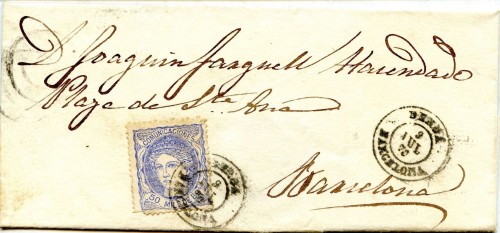 D. Joaquin Farguell Hacendado
Plaza de Sta Ana
Barcelona
COMUNICACIONES
50 MILS
BERGA
2
JUL
70
BARCELONA